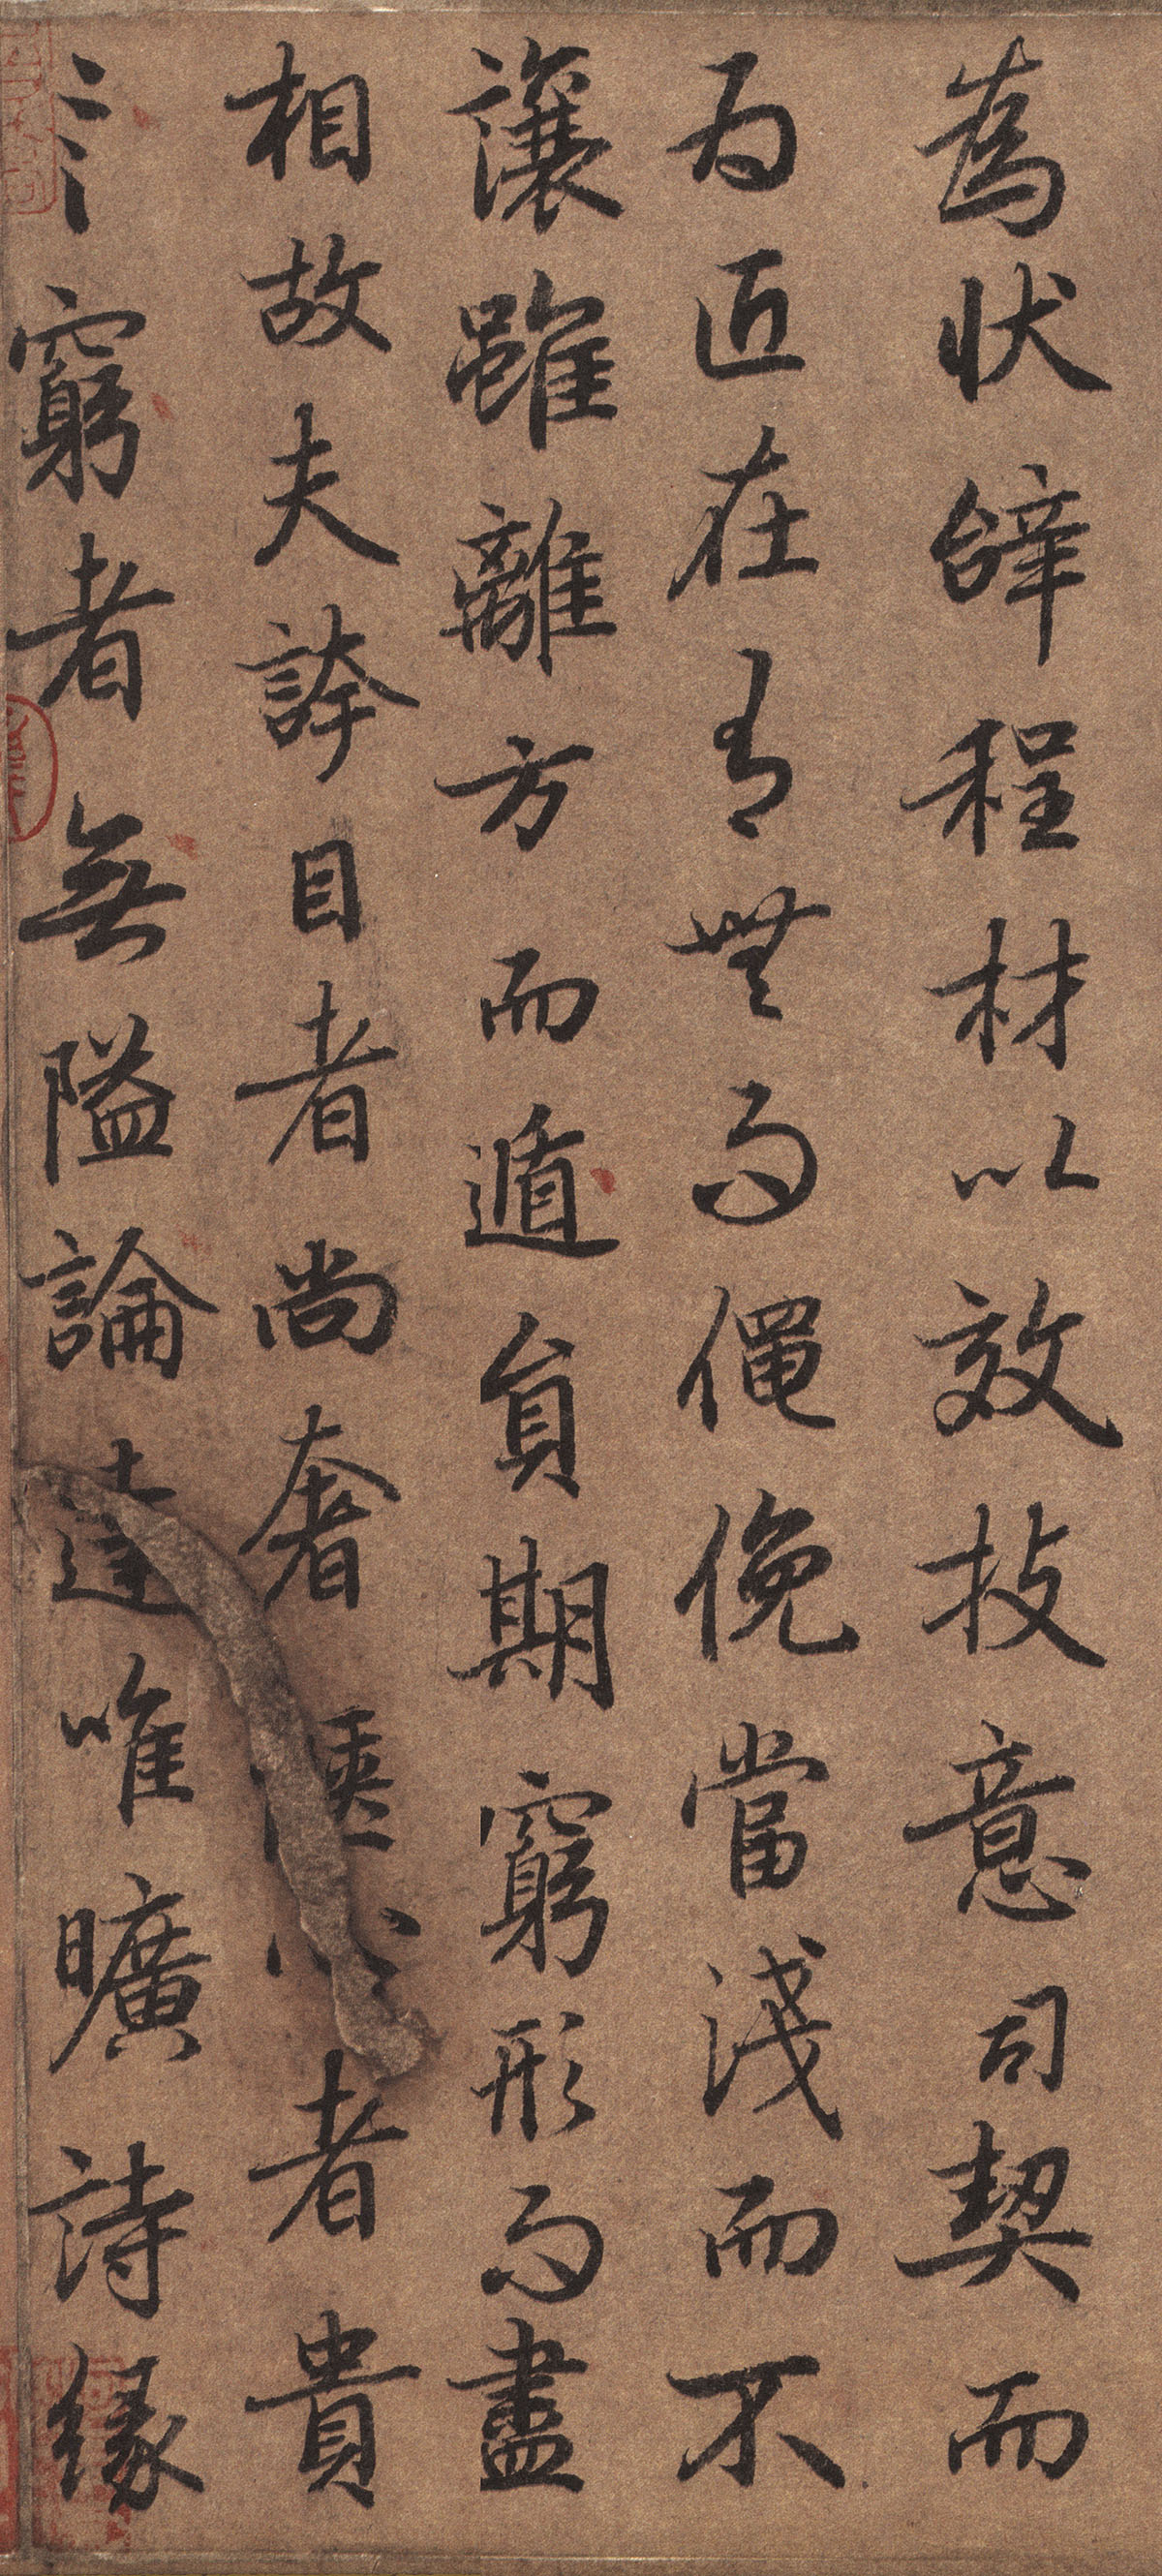 為狀辝程材以效技意司契而
為匠在有無而僶俛當淺而不
讓雖離方而遁員期窮形而盡
相故夫誇目者尚奢愜心者貴
窮者無隘論達唯曠詩緣